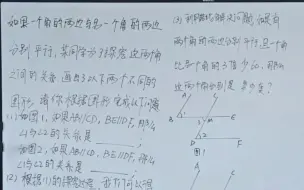 如果一个角的两边与另一个角的两边
分别平行,某同学为了探究这两个角
之间的关系,画出了以下两个不同的
图形,请你根据图形完成以下问题
(1)如图1,如果AB∥CD,BE∥DF,那么
∠1与∠2的关系是
如图2,如果AB∥CD,BE∥DF,那么
∠1与∠2的关系是
(2)根据(1)的探究过程,我们可以得
如果
两个角的两边分别平行,且一个角
比另一个角的3倍少60°,那么
这两个角分别是多少度?
A
B
1
E
C
D
2
F
图1
A
C